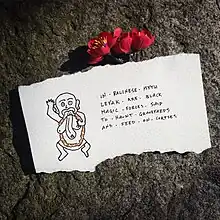 IN - BALINESE - MYTH
LEYAK - ARE - BLACK
MAGIC - FORCES - SAID
TO - HAUNT - GRAVEYARDS
AND - FEED - ON - CORPSES